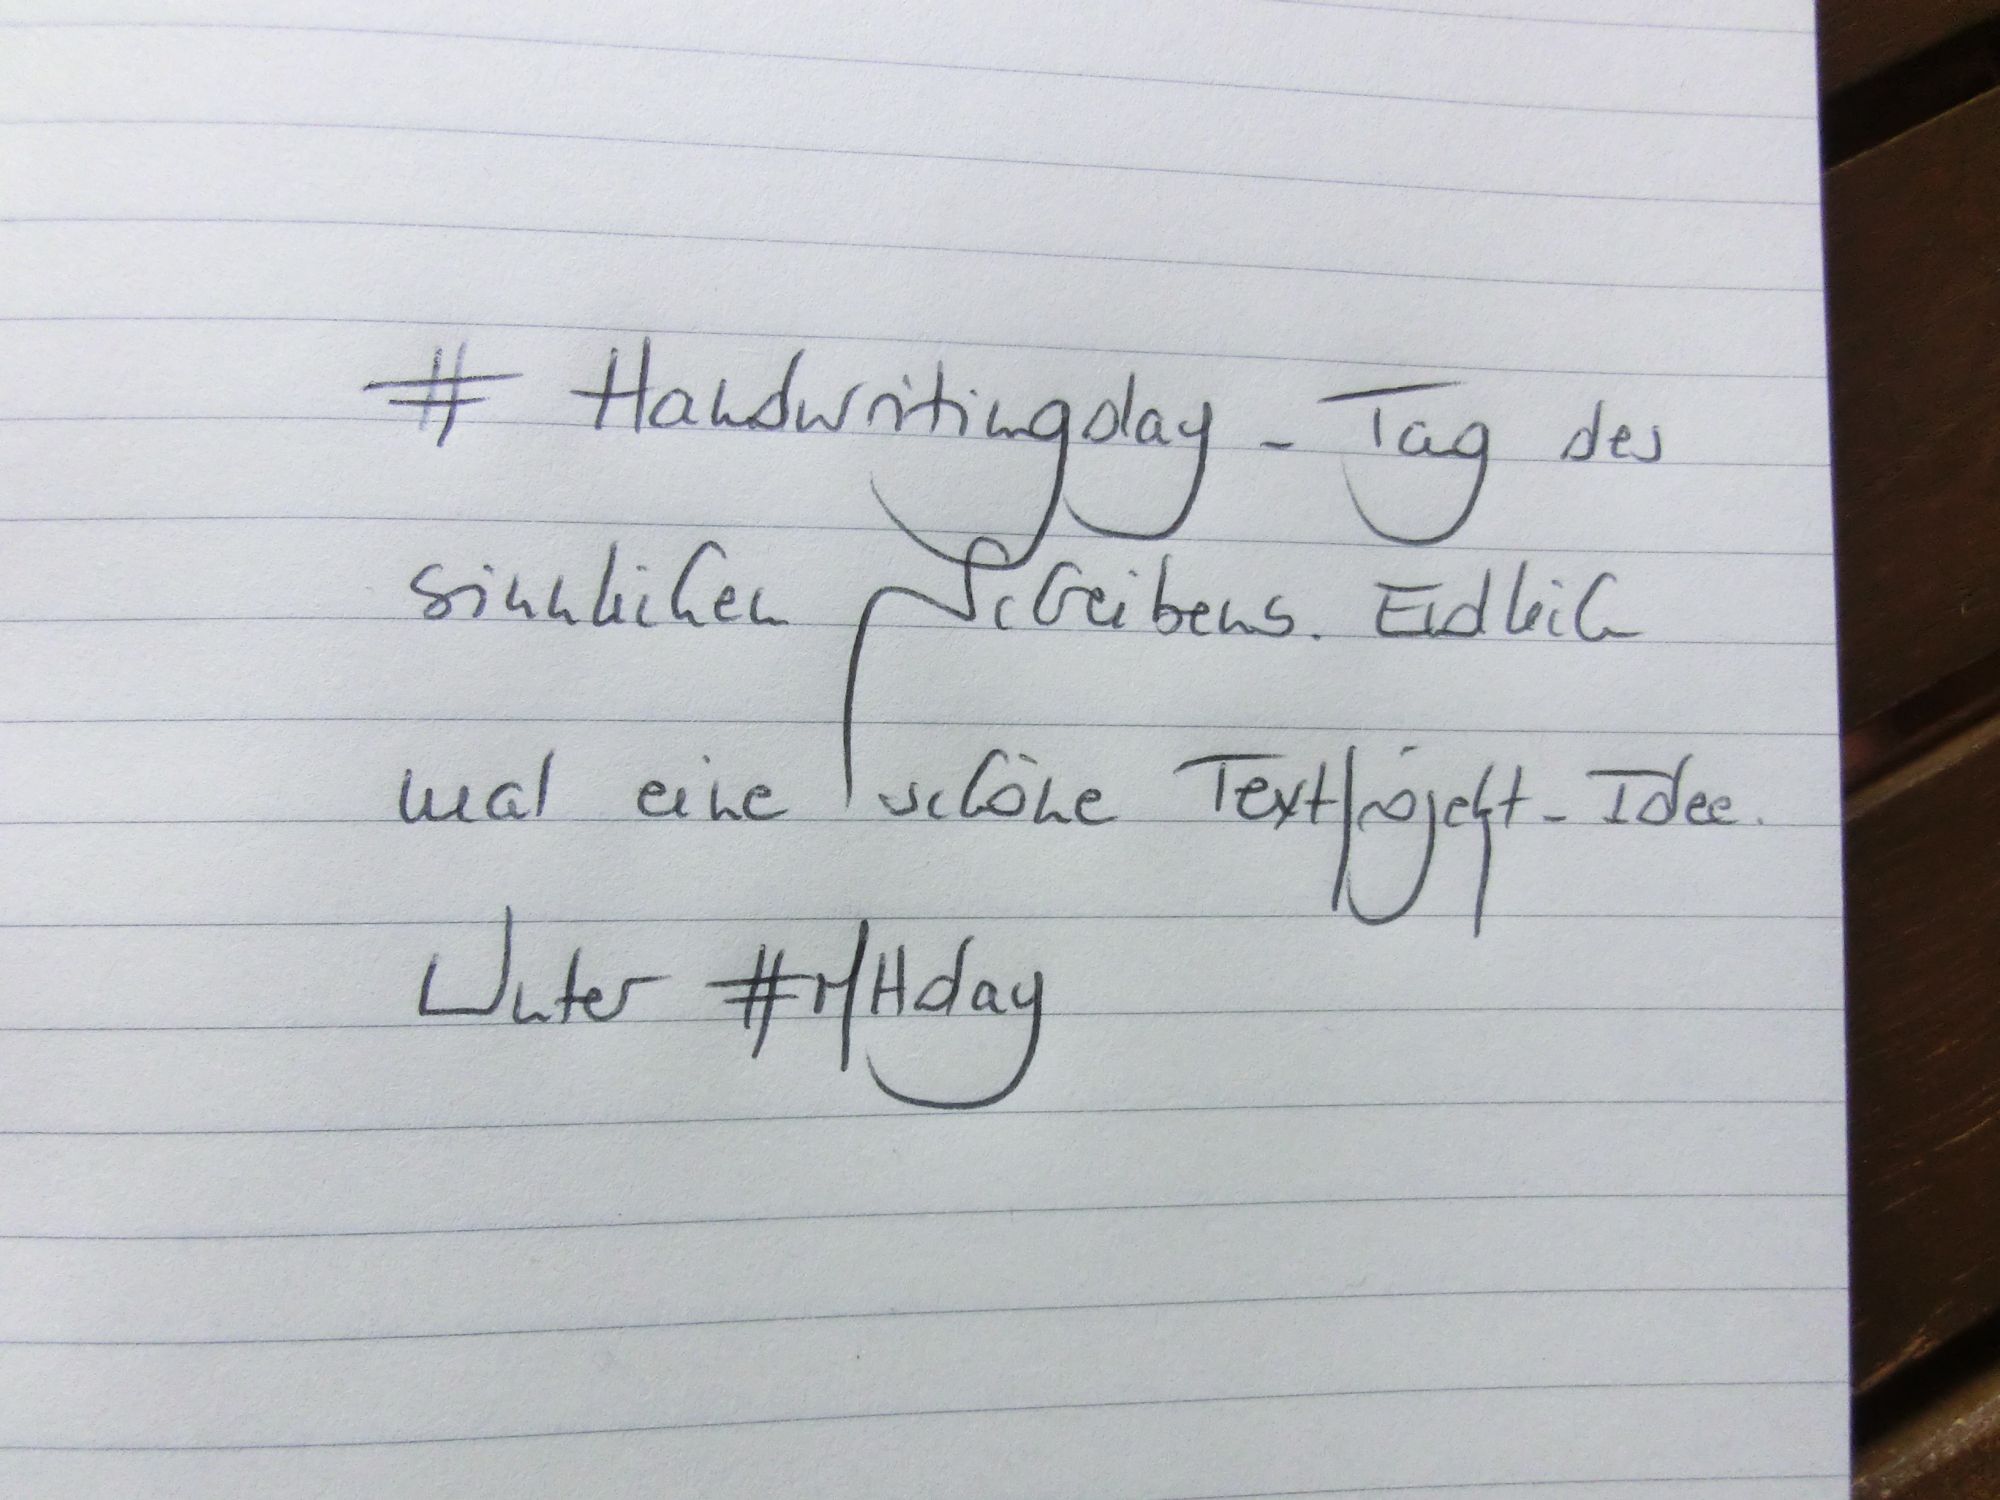 # Handwritingday - Tag des
sinnlichen Schreibens. Endlich
mal eine schöne Textprojekt-Idee.
Unter